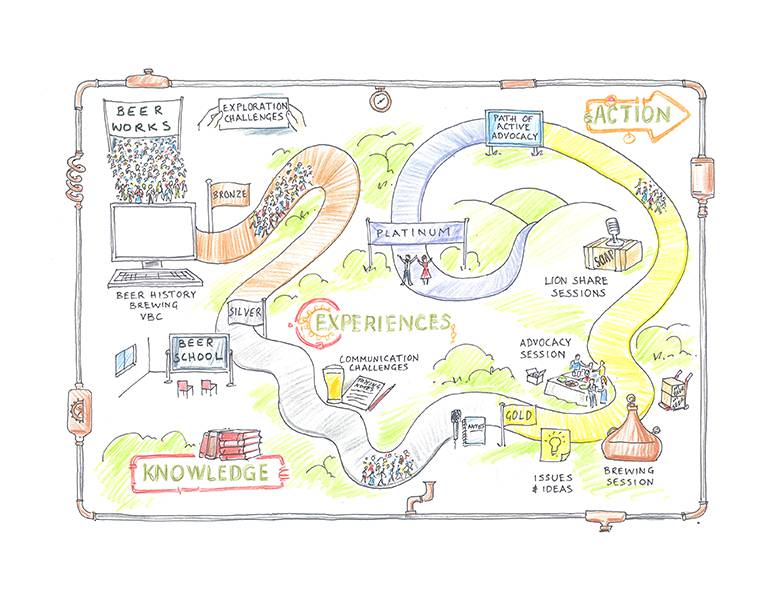 BEER
WORKS
EXPLORATION
CHALLENGES
PATH OF
ACTIVE
ADVOCACY
ACTION
BRONZE
PLATINUM
SOAP
LION SHARE
SESSIONS
BEER HISTORY
BREWING
VBC
SILVER
EXPERIENCES
BEER
SCHOOL
COMMUNICATION
CHALLENGES
TASTING
NOTES
ADVOCACY
SESSION
GOLD
NOTES
KNOWLEDGE
ISSUES
& IDEAS
BREWING
SESSION